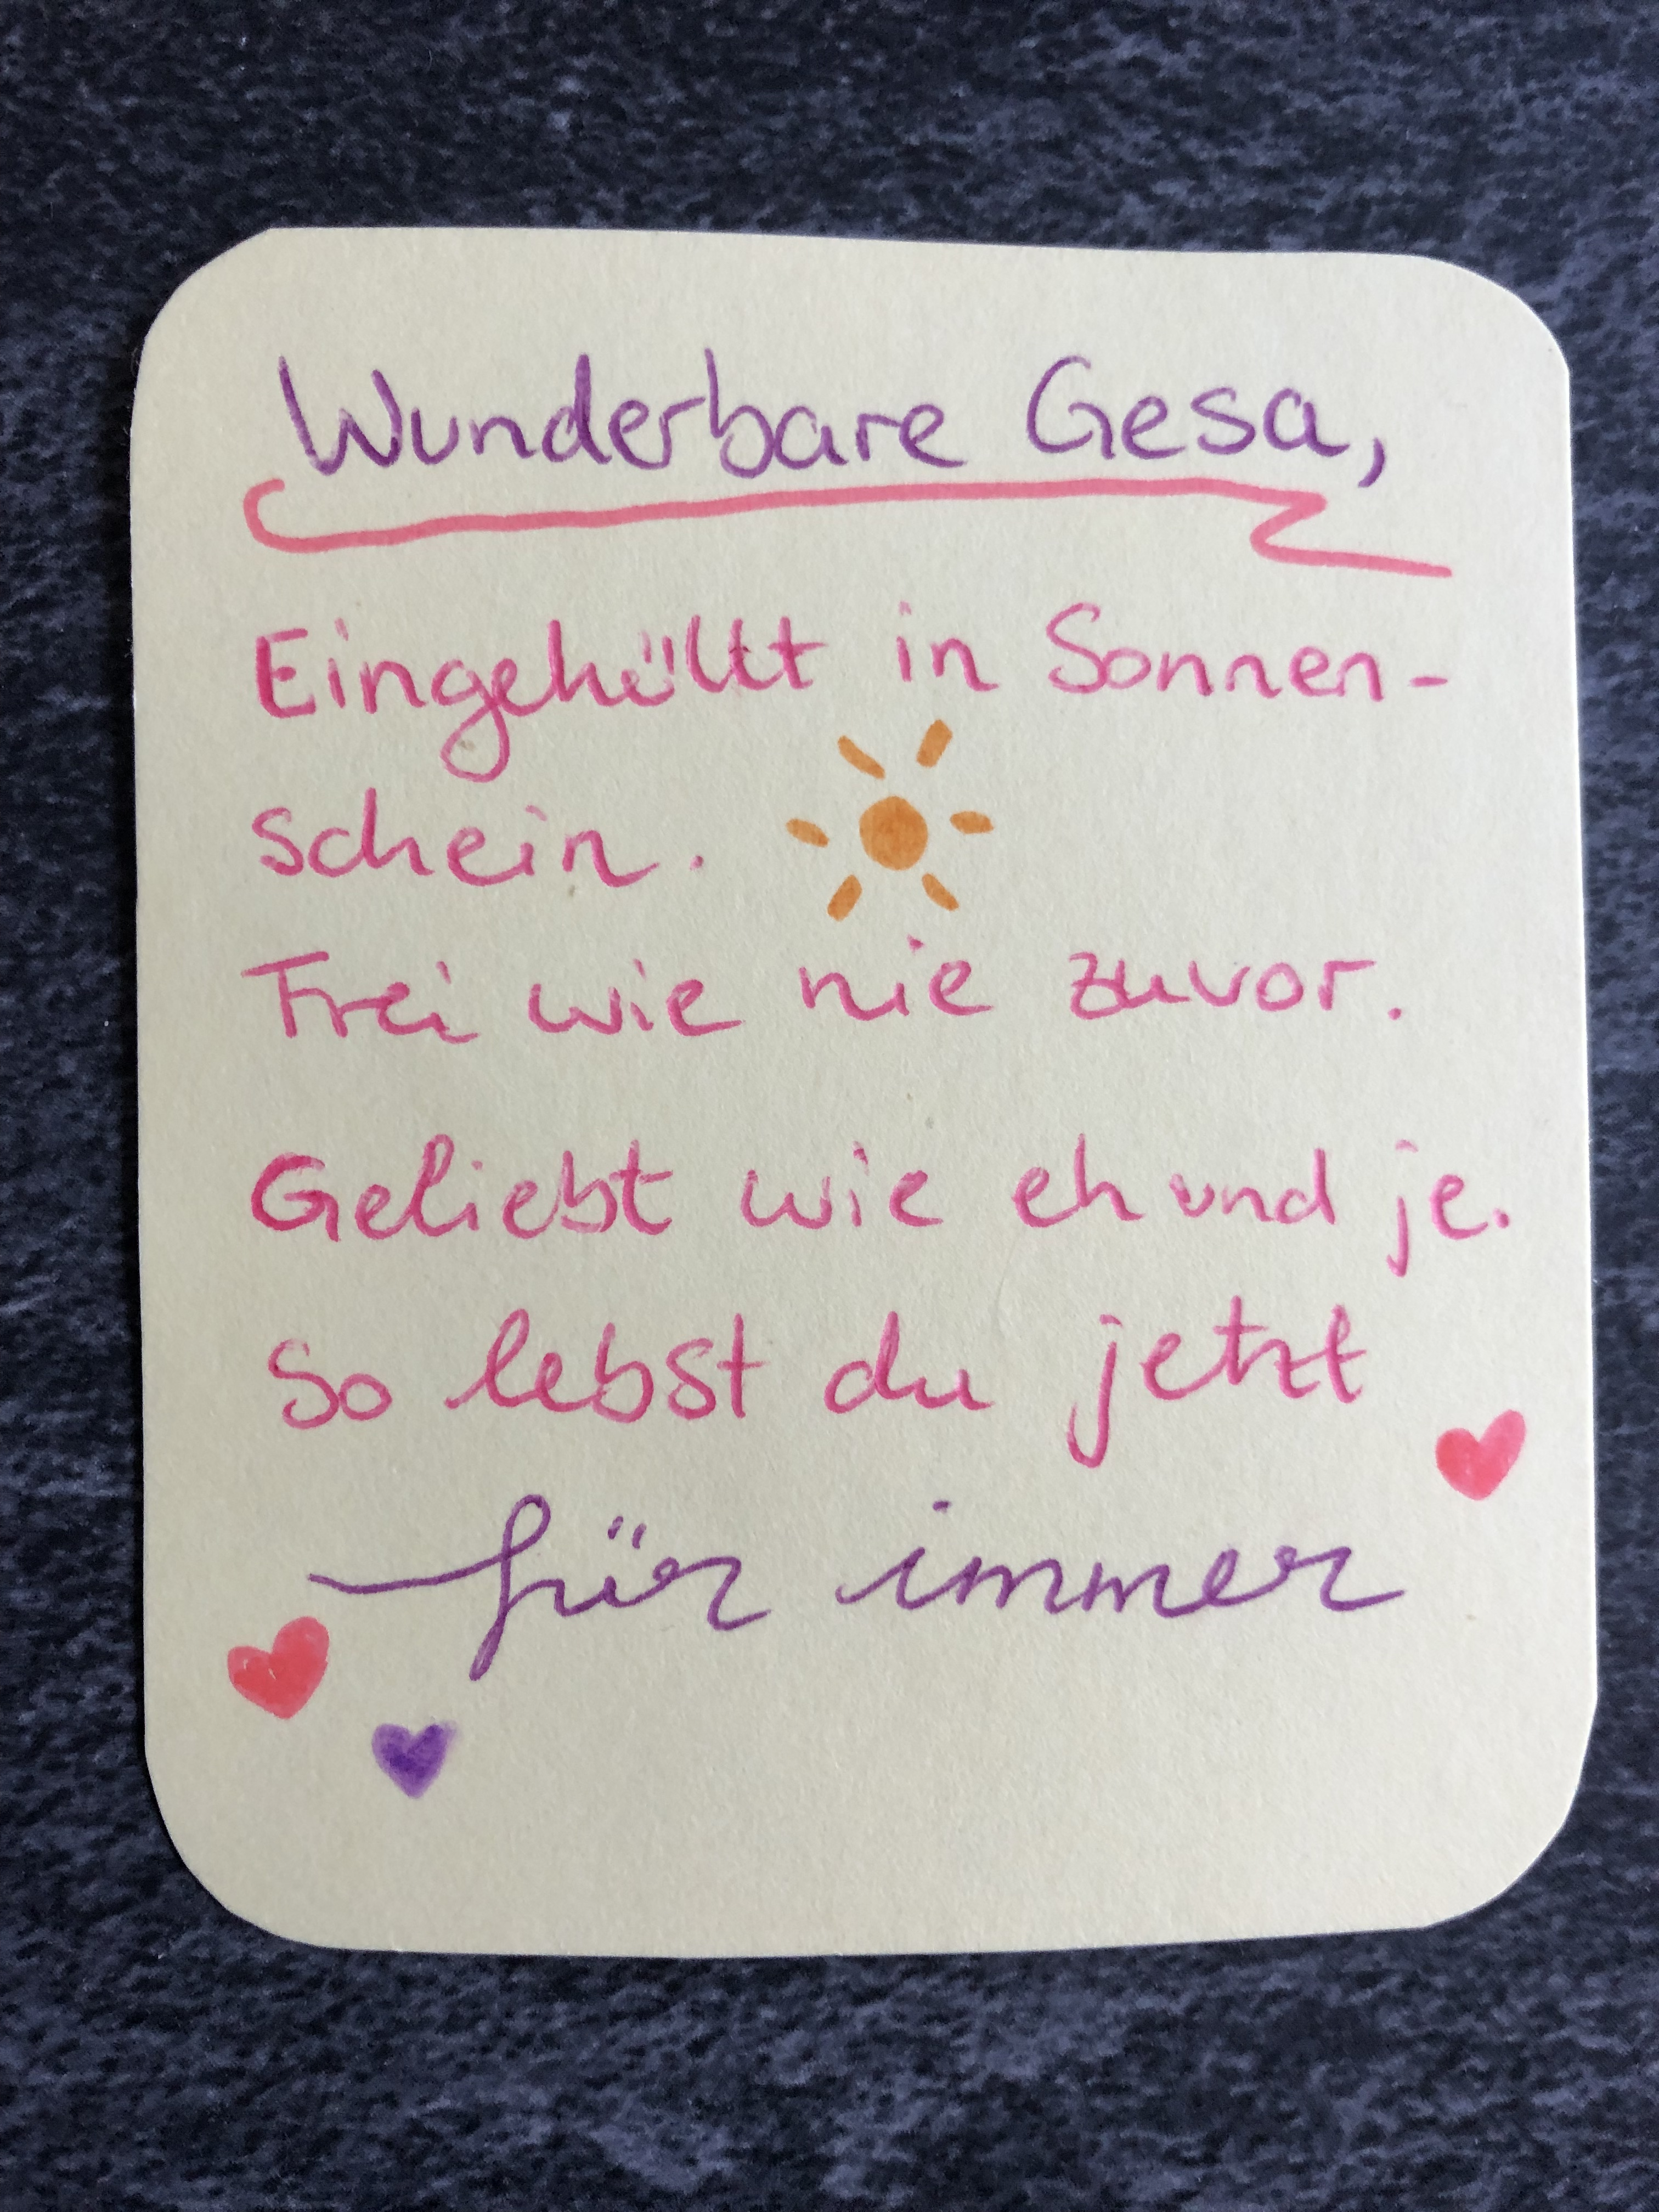 Wunderbare Gesa,
Eingehüllt in Sonnen-
schein.
Frei wie nie zuvor.
Geliebt wie eh und je.
So lebst du jetzt
für immer